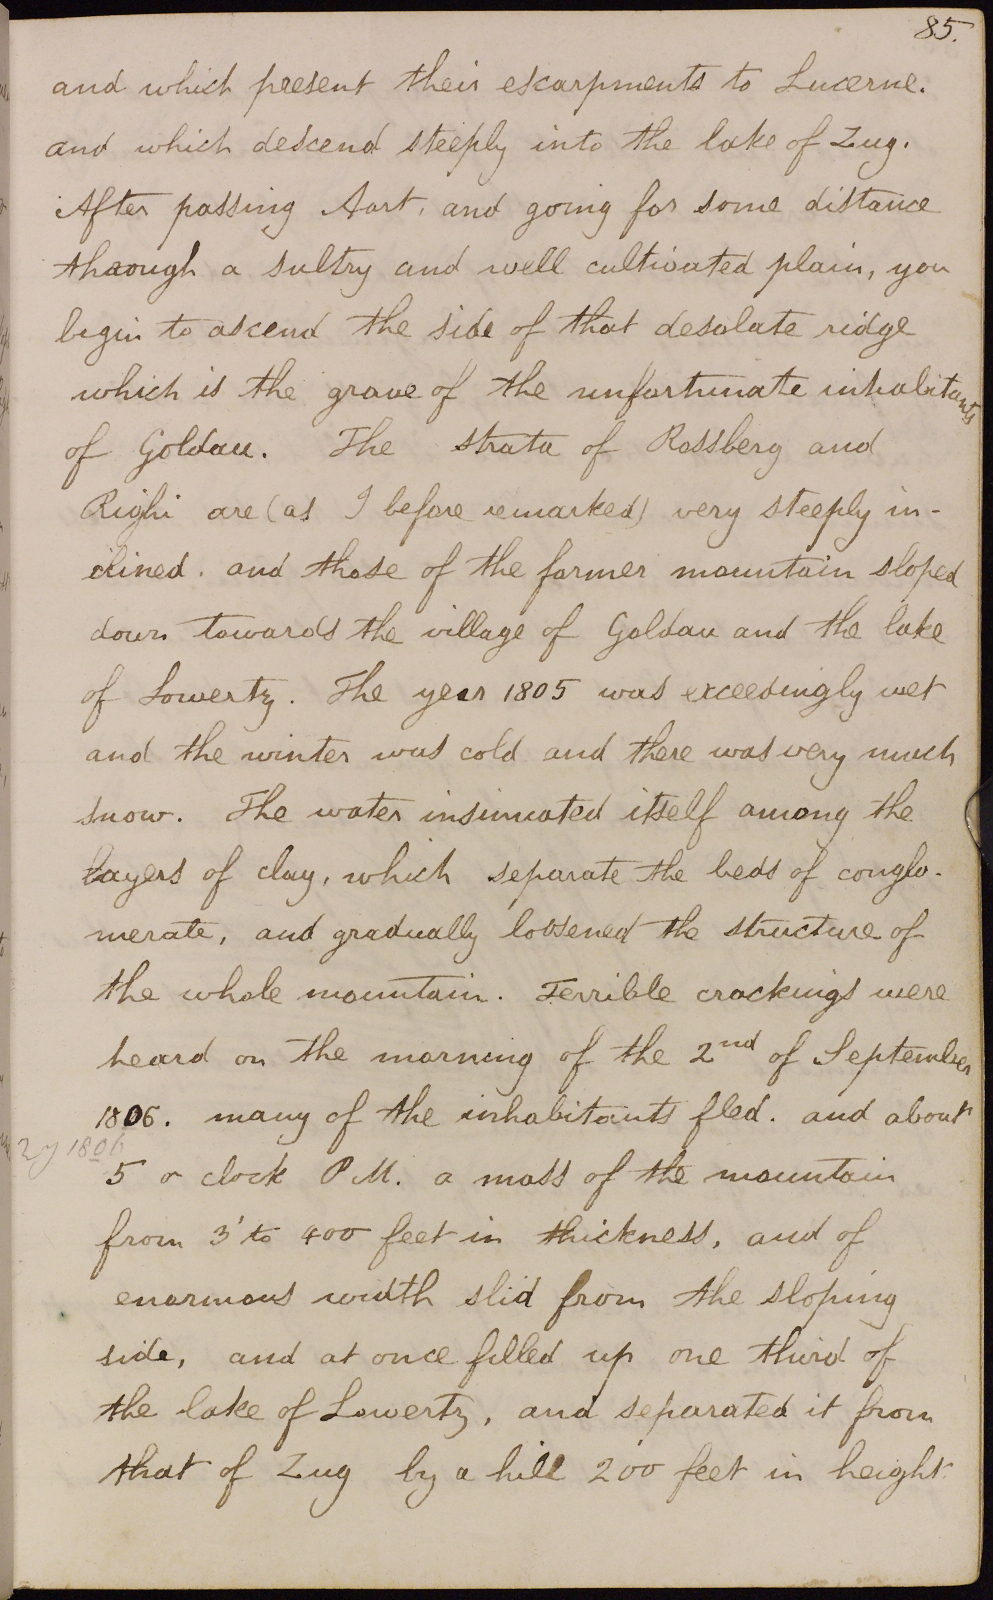 85.
and which present their escarpments to Lucerne.
and which descend steeply into the lake of Zug.
After passing Aart, and going for some distance
through a sultry and well cultivated plain, you
begin to ascend the side of that desolate ridge
which is the grave of the unfortunate inhabitants
of Goldau. The strata of Rossberg and
Righi are (as I before remarked) very steeply in-
clined. and those of the former mountain sloped
down towards the village of Goldau and the lake
of Lowertz. The year 1805 was exceedingly wet
and the winter was cold and there was very much
snow. The water insinuated itself among the
layers of clay, which separate the beds of conglo-
merate, and gradually loosened the structure of
the whole mountain. Terrible crackings were
heard on the morning of the 2nd of September
1806. many of the inhabitants fled. and about
2 y 1806
5 o clock P.M. a mass of the mountain
from 3' to 400 feet in thickness, and of
enormous width slid from the sloping
side, and at once filled up one third of
the lake of Lowertz, and separated it from
that of Zug by a hill 200 feet in height.